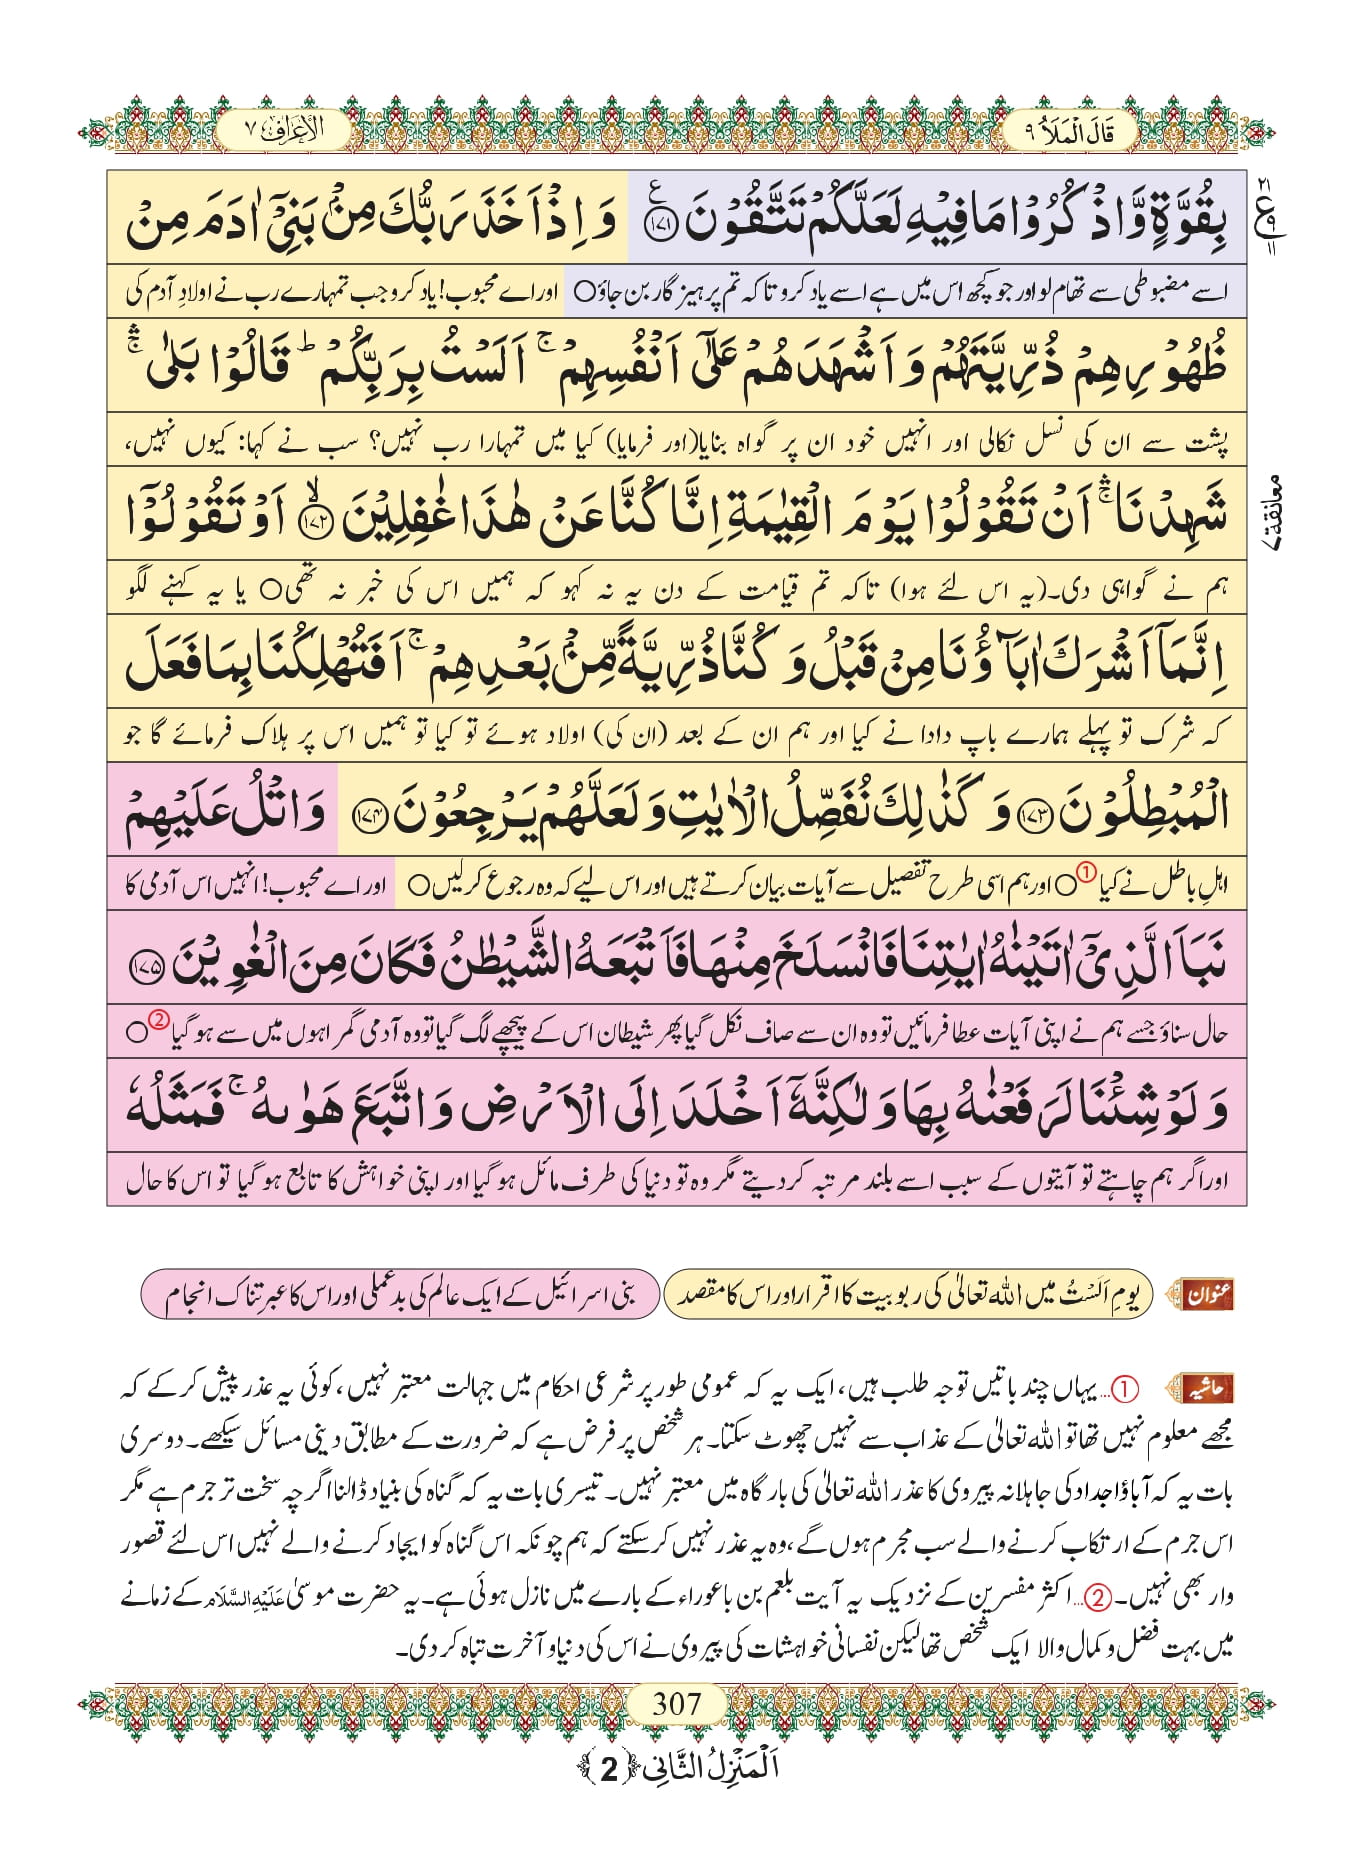 قَالَ الْمَلَاُ ۹
الاعراف ۷
بِقُوَّةٍ وَّاذْكُرُوْا مَا فِيْهِ لَعَلَّكُمْ تَتَّقُوْنَ ﴿۱۷۱﴾ وَ اِذْ اَخَذَ رَبُّكَ مِنْۢ بَنِیْۤ اٰدَمَ مِنْ
۲۱
ع
۹
۱۱
اسے مضبوطی سے تھام لو اور جو کچھ اس میں ہے اسے یاد کرو تاکہ تم پرہیز گار بن جاؤ○ اور اے محبوب! یاد کرو جب تمہارے رب نے اولادِ آدم کی
ظُهُوْرِهِمْ ذُرِّیَّتَهُمْ وَ اَشْهَدَهُمْ عَلٰۤی اَنْفُسِهِمْ ۚ اَلَسْتُ بِرَبِّكُمْ ؕ قَالُوْا بَلٰی ۛۚ
پشت سے ان کی نسل نکالی اور انہیں خود ان پر گواہ بنایا(اور فرمایا) کیا میں تمہارا رب نہیں؟ سب نے کہا: کیوں نہیں،
شَهِدْنَا ۛۚ اَنْ تَقُوْلُوْا یَوْمَ الْقِیٰمَةِ اِنَّا كُنَّا عَنْ هٰذَا غٰفِلِیْنَ ﴿۱۷۲﴾ ۙ اَوْ تَقُوْلُوْۤا
معانقة ۷
ہم نے گواہی دی۔(یہ اس لئے ہوا) تاکہ تم قیامت کے دن یہ نہ کہو کہ ہمیں اس کی خبر نہ تھی○ یا یہ کہنے لگو
اِنَّمَاۤ اَشْرَكَ اٰبَآؤُنَا مِنْ قَبْلُ وَ كُنَّا ذُرِّیَّةً مِّنْۢ بَعْدِهِمْ ۚ اَفَتُهْلِكُنَا بِمَا فَعَلَ
کہ شرک تو پہلے ہمارے باپ دادا نے کیا اور ہم ان کے بعد (ان کی) اولاد ہوئے تو کیا تو ہمیں اس پر ہلاک فرمائے گا جو
الْمُبْطِلُوْنَ ﴿۱۷۳﴾ وَ كَذٰلِكَ نُفَصِّلُ الْاٰیٰتِ وَ لَعَلَّهُمْ یَرْجِعُوْنَ ﴿۱۷۴﴾ وَ اتْلُ عَلَیْهِمْ
اہلِ باطل نے کیا①○ اور ہم اسی طرح تفصیل سے آیات بیان کرتے ہیں اور اس لیے کہ وہ رجوع کرلیں○ اور اے محبوب! انہیں اس آدمی کا
نَبَاَ الَّذِیْۤ اٰتَیْنٰهُ اٰیٰتِنَا فَانْسَلَخَ مِنْهَا فَاَتْبَعَهُ الشَّیْطٰنُ فَكَانَ مِنَ الْغٰوِیْنَ ﴿۱۷۵﴾
حال سناؤ جسے ہم نے اپنی آیات عطا فرمائیں تو وہ ان سے صاف نکل گیا پھر شیطان اس کے پیچھے لگ گیا تو وہ آدمی گمراہوں میں سے ہو گیا②○
وَ لَوْ شِئْنَا لَرَفَعْنٰهُ بِهَا وَ لٰكِنَّهٗۤ اَخْلَدَ اِلَی الْاَرْضِ وَ اتَّبَعَ هَوٰىهُ ۚ فَمَثَلُهٗ
اور اگر ہم چاہتے تو آیتوں کے سبب اسے بلند مرتبہ کردیتے مگر وہ تو دنیا کی طرف مائل ہو گیا اور اپنی خواہش کا تابع ہو گیا تو اس کا حال
عنوان
یومِ اَلَسْتُ میں اللہ تعالیٰ کی ربوبیت کا اقرار اور اس کا مقصد
بنی اسرائیل کے ایک عالم کی بدعملی اور اس کا عبرتناک انجام
حاشیہ
①...یہاں چند باتیں توجہ طلب ہیں، ایک یہ کہ عمومی طور پر شرعی احکام میں جہالت معتبر نہیں، کوئی یہ عذر پیش کر کے کہ
مجھے معلوم نہیں تھا تو اللہ تعالیٰ کے عذاب سے نہیں چھوٹ سکتا۔ ہر شخص پر فرض ہے کہ ضرورت کے مطابق دینی مسائل سیکھے۔ دوسری
بات یہ کہ آباؤ اجداد کی جاہلانہ پیروی کا عذر اللہ تعالیٰ کی بارگاہ میں معتبر نہیں۔ تیسری بات یہ کہ گناہ کی بنیاد ڈالنا اگرچہ سخت تر جرم ہے مگر
اس جرم کے ارتکاب کرنے والے سب مجرم ہوں گے، وہ یہ عذر نہیں کرسکتے کہ ہم چونکہ اس گناہ کو ایجاد کرنے والے نہیں اس لئے قصور
وار بھی نہیں۔ ②...اکثر مفسرین کے نزدیک یہ آیت بلعم بن باعوراء کے بارے میں نازل ہوئی ہے۔ یہ حضرت موسیٰ عَلَیْهِ السَّلَام کے زمانے
میں بہت فضل و کمال والا ایک شخص تھا لیکن نفسانی خواہشات کی پیروی نے اس کی دنیا و آخرت تباہ کر دی۔
307
اَلْمَنْزِلُ الثَّانِی ﴿2﴾